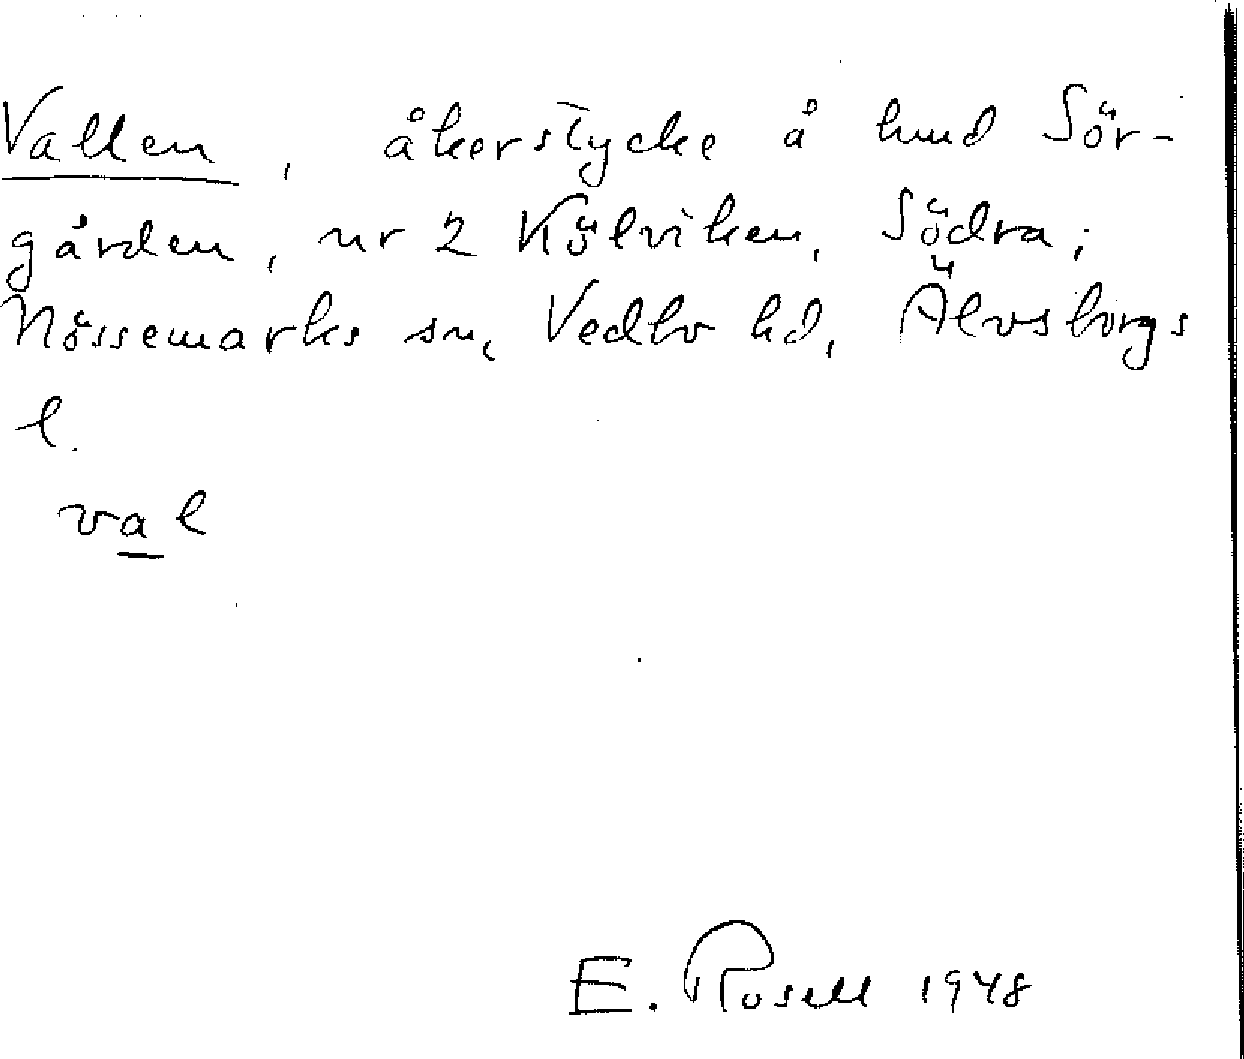 Vallen, åkerstycke å hmd Sör-
gården, nr 2 Kölviken, Södra;
Nössemarks sn, Vedbo hd, Älvsborgs
l.
val
E. Rosell 1948